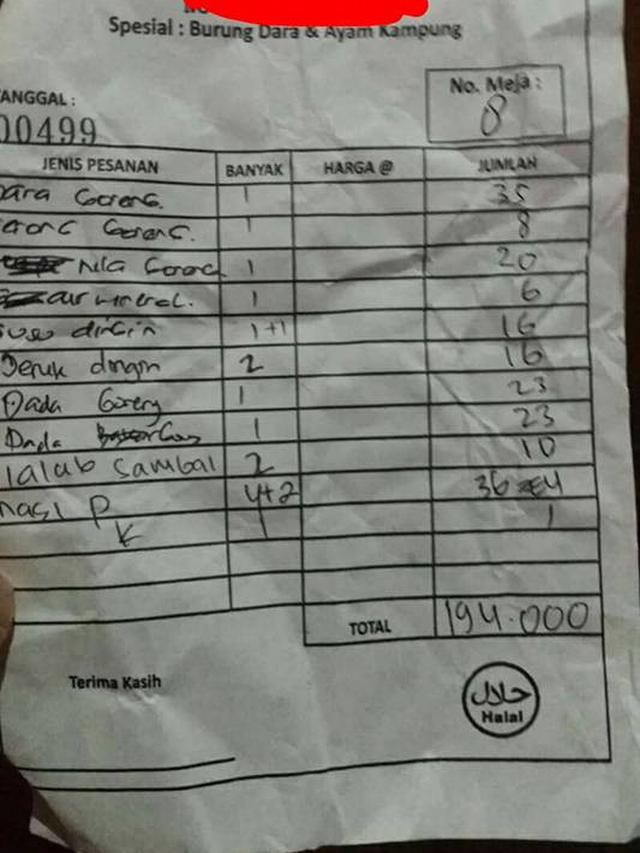 Spesial : Burung Dara & Ayam Kampung
ANGGAL :
No. Meja :
00499
8
JENIS PESANAN BANYAK HARGA @ JUMLAH
ara Goreng. 1 35
Goreng. 1 8
Nila Goreng 1 20
air mineral. 1 6
susu dingin 1+1 16
Jeruk dingin 2 16
Dada Goreng 1 23
Dada 1 23
lalab sambal 2 10
nasi P 4+2 36
K 1 1
TOTAL 194.000
Terima Kasih
حلال
Halal